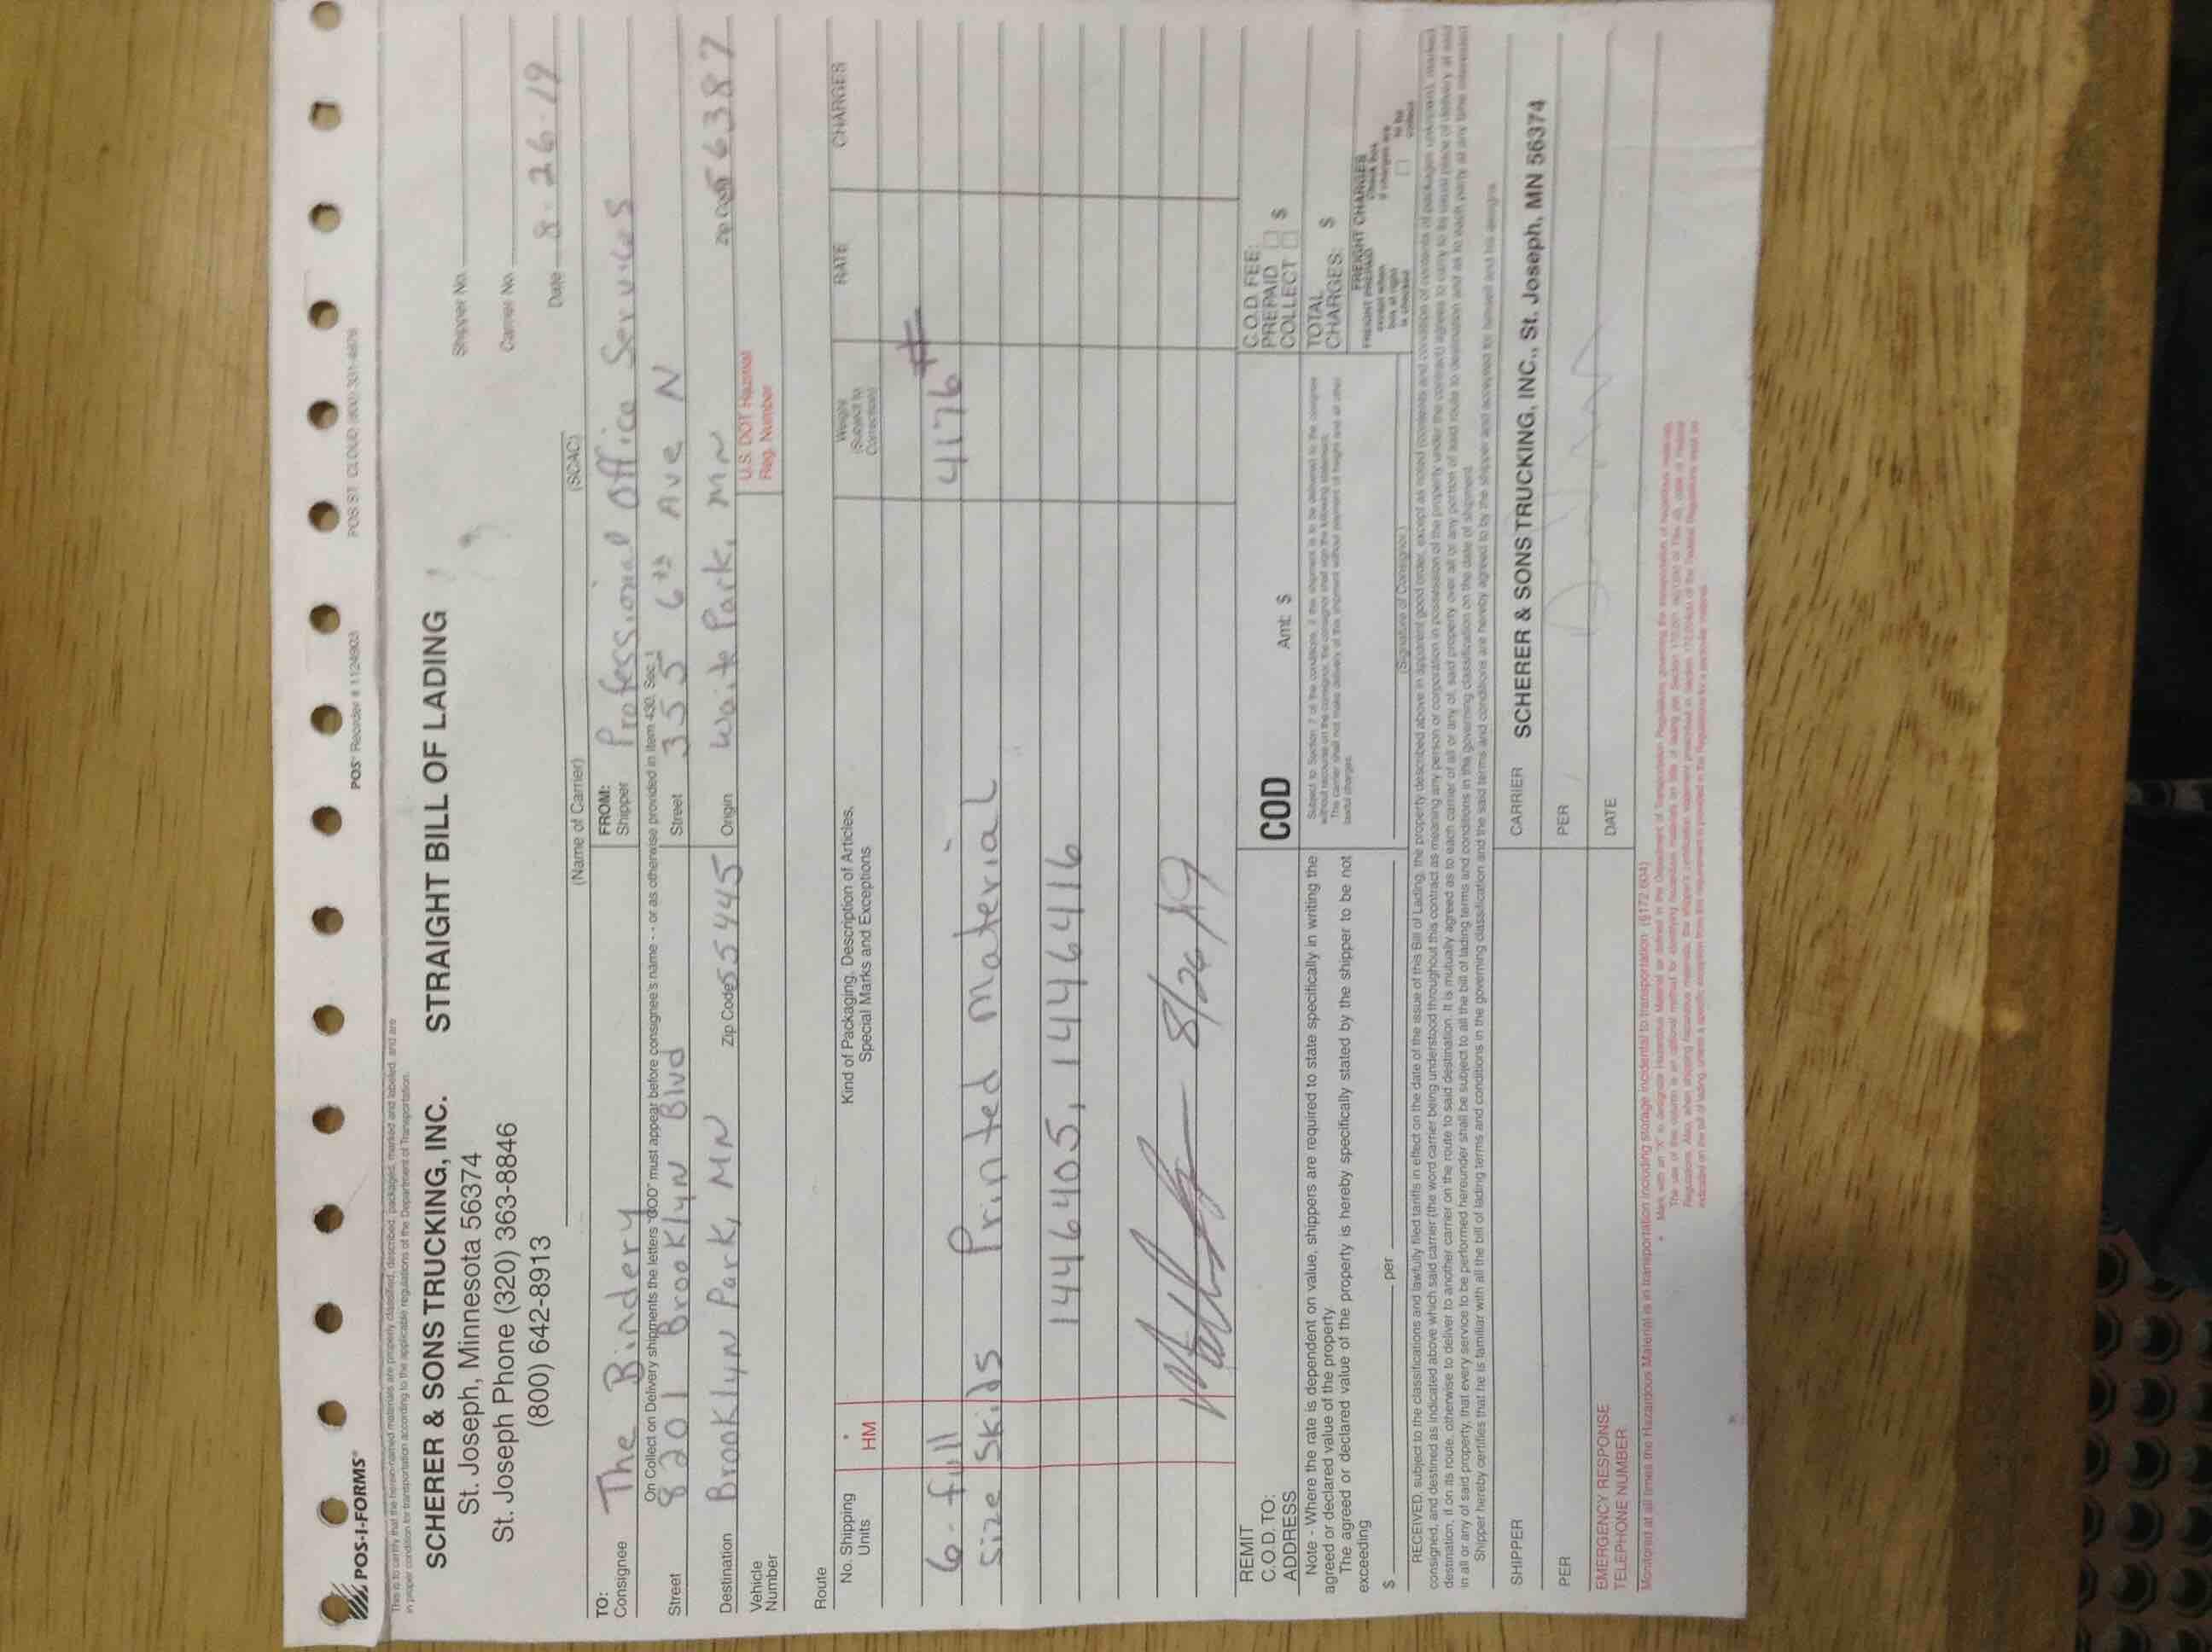 POS-I-FORMS® POS® Reorder # 1124903 POS ST. CLOUD (800) 331-4676
This is to certify that the herein-named materials are properly classified, described, packaged, marked and labeled, and are
in proper condition for transportation according to the applicable regulations of the Department of Transportation.
SCHERER & SONS TRUCKING, INC. STRAIGHT BILL OF LADING
St. Joseph, Minnesota 56374
St. Joseph Phone (320) 363-8846
(800) 642-8913
Shipper No.
Carrier No.
Date 8-26-19
(Name of Carrier) (SCAC)
TO:
Consignee The Bindery
FROM:
Shipper Professional Office Services
On Collect on Delivery shipments the letters "COD" must appear before consignee's name - - or as otherwise provided in item 430, Sec. 1
Street 8201 Brooklyn Blvd
Street 355 6th Ave N
Destination Brooklyn Park, MN Zip Code 55445
Origin Waite Park, MN Zip Code 56387
Vehicle
Number
U.S. DOT Hazmat
Reg. Number
Route
No. Shipping
Units
*
HM
Kind of Packaging, Description of Articles,
Special Marks and Exceptions
Weight
(Subject to
Correction)
RATE
CHARGES
6-full 4176#
Size Skids Printed Material
1446405, 1446416
8/26/19
REMIT
C.O.D. TO:
ADDRESS
COD Amt. $
C.O.D. FEE:
PREPAID
COLLECT $
Note - Where the rate is dependent on value, shippers are required to state specifically in writing the
agreed or declared value of the property.
The agreed or declared value of the property is hereby specifically stated by the shipper to be not
exceeding
$ per
Subject to Section 7 of the conditions, if this shipment is to be delivered to the consignee
without recourse on the consignor, the consignor shall sign the following statement:
The carrier shall not make delivery of this shipment without payment of freight and all other
lawful charges.
(Signature of Consignor)
TOTAL
CHARGES: $
FREIGHT CHARGES
FREIGHT PREPAID
except when
box at right
is checked
Check box
if charges are
to be
collect
RECEIVED, subject to the classifications and lawfully filed tariffs in effect on the date of the issue of this Bill of Lading, the property described above in apparent good order, except as noted (contents and condition of contents of packages unknown), marked,
consigned, and destined as indicated above which said carrier (the word carrier being understood throughout this contract as meaning any person or corporation in possession of the property under the contract) agrees to carry to its usual place of delivery at said
destination, if on its route, otherwise to deliver to another carrier on the route to said destination. It is mutually agreed as to each carrier of all or any of, said property over all or any portion of said route to destination and as to each party at any time interested
in all or any of said property, that every service to be performed hereunder shall be subject to all the bill of lading terms and conditions in the governing classification on the date of shipment.
Shipper hereby certifies that he is familiar with all the bill of lading terms and conditions in the governing classification and the said terms and conditions are hereby agreed to by the shipper and accepted for himself and his assigns.
SHIPPER
CARRIER SCHERER & SONS TRUCKING, INC., St. Joseph, MN 56374
PER
PER
EMERGENCY RESPONSE
TELEPHONE NUMBER
DATE
Monitored at all times the Hazardous Material is in transportation including storage incidental to transportation (§172.604)